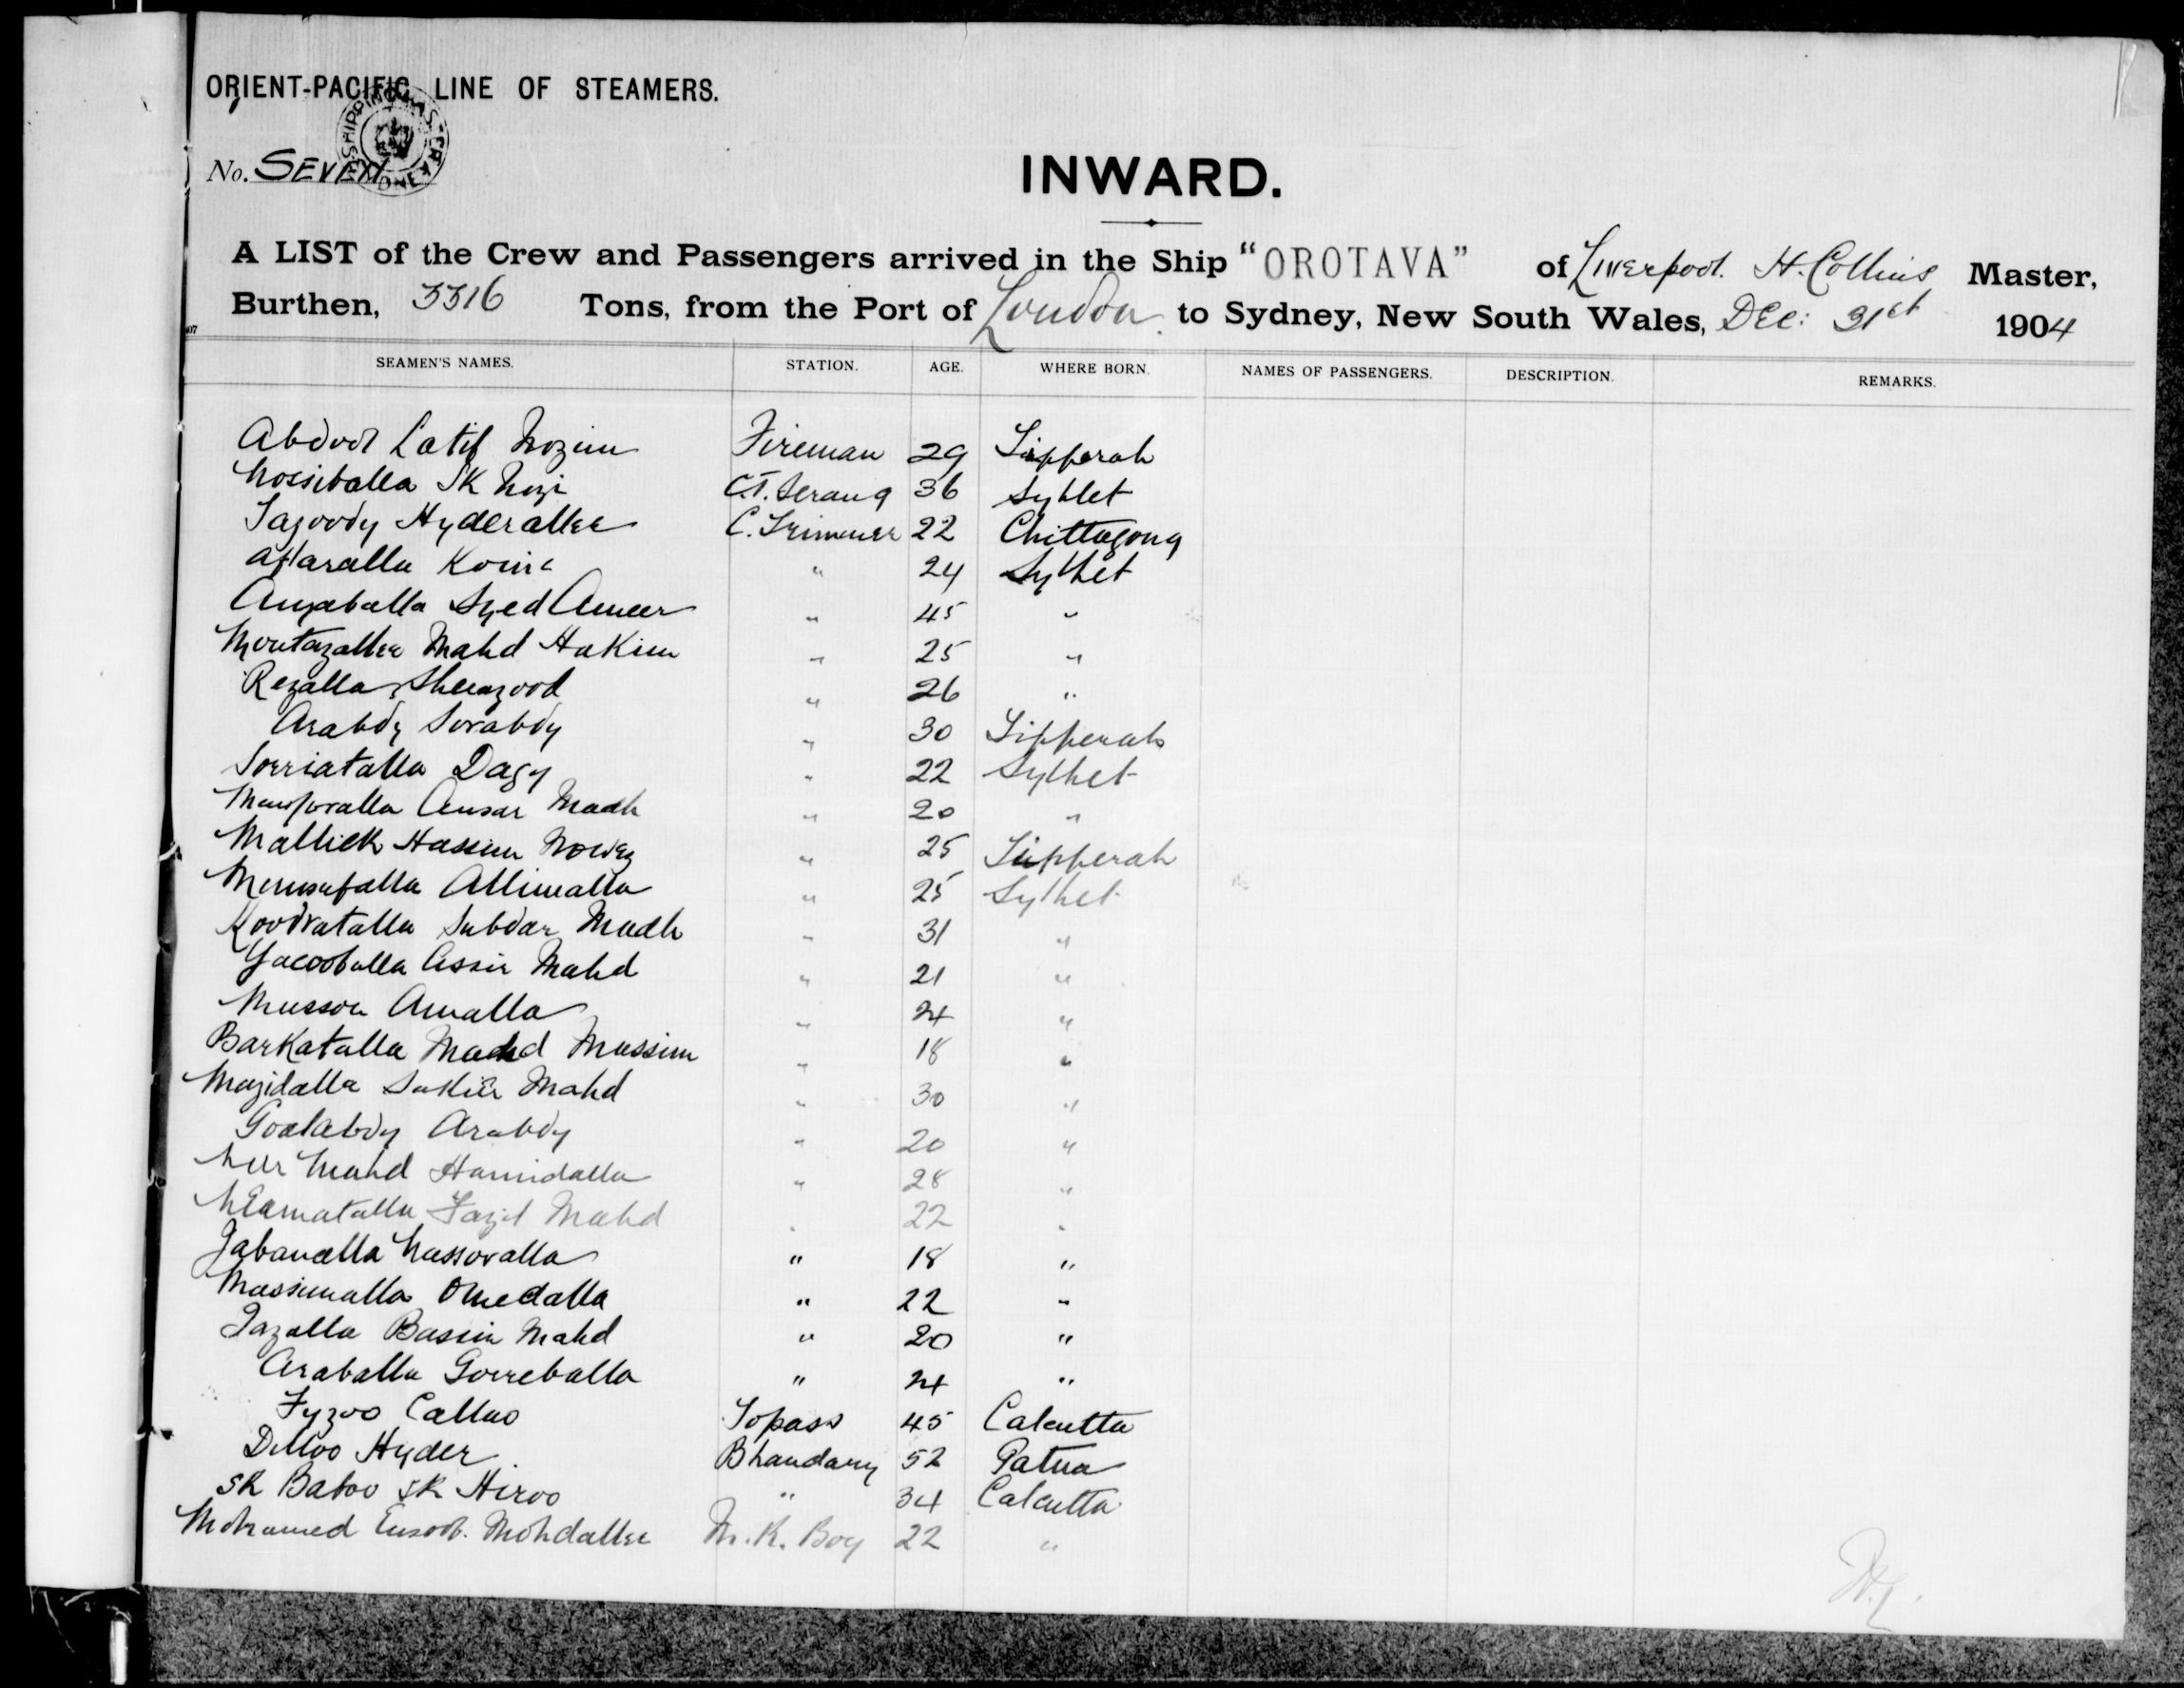 ORIENT-PACIFIC LINE OF STEAMERS.
SHIPPING MASTER SYDNEY
No. SEVEN
INWARD.
A LIST of the Crew and Passengers arrived in the Ship "OROTAVA" of Liverpool. H. Collins Master,
Burthen, 3316 Tons, from the Port of London to Sydney, New South Wales, Dec: 31st 1904
SEAMEN'S NAMES. STATION. AGE. WHERE BORN. NAMES OF PASSENGERS. DESCRIPTION. REMARKS.
Abdool Latif Nozim Fireman 29 Tipperah
Nossiballa SK Nozi C.T. Serang 36 Sylhet
Tazoody Hyderallee C. Trimmer 22 Chittagong
Aftaralla " 24 Sylhet
Anzaballa Syed Ameer " 45 "
Montazallee Mahd Hakim " 25 "
Rezalla Sherazood " 26 "
Arabdy Sorabdy " 30 Tipperah
Sorriatalla Dagy " 22 Sylhet
Ansar Madh " 20 "
Mallick Hassim Nowaz " 25 Tipperah
Allimalla " 25 Sylhet
Koodratalla Subdar Madh " 31 "
Yacooballa Assir Mahd " 21 "
Musson Amalla " 24 "
Barkatalla Mahd Mussim " 18 "
Mazidalla Sakir Mahd " 30 "
Goalabdy Arabdy " 20 "
Nur Mahd Hamidalla " 28 "
Neamatalla Fazil Mahd " 22 "
Jabanalla Nassoralla " 18 "
Massimalla Omedalla " 22 "
Tazalla Bassir Mahd " 20 "
Araballa Gorreballa " 24 "
Fyzoo Calloo Topass 45 Calcutta
Dilloo Hyder Bhandary 52 Patna
SK Baboo SK Hiroo " 34 Calcutta
Mohamed Eusoob. Mohdallee M.R. Boy 22 "